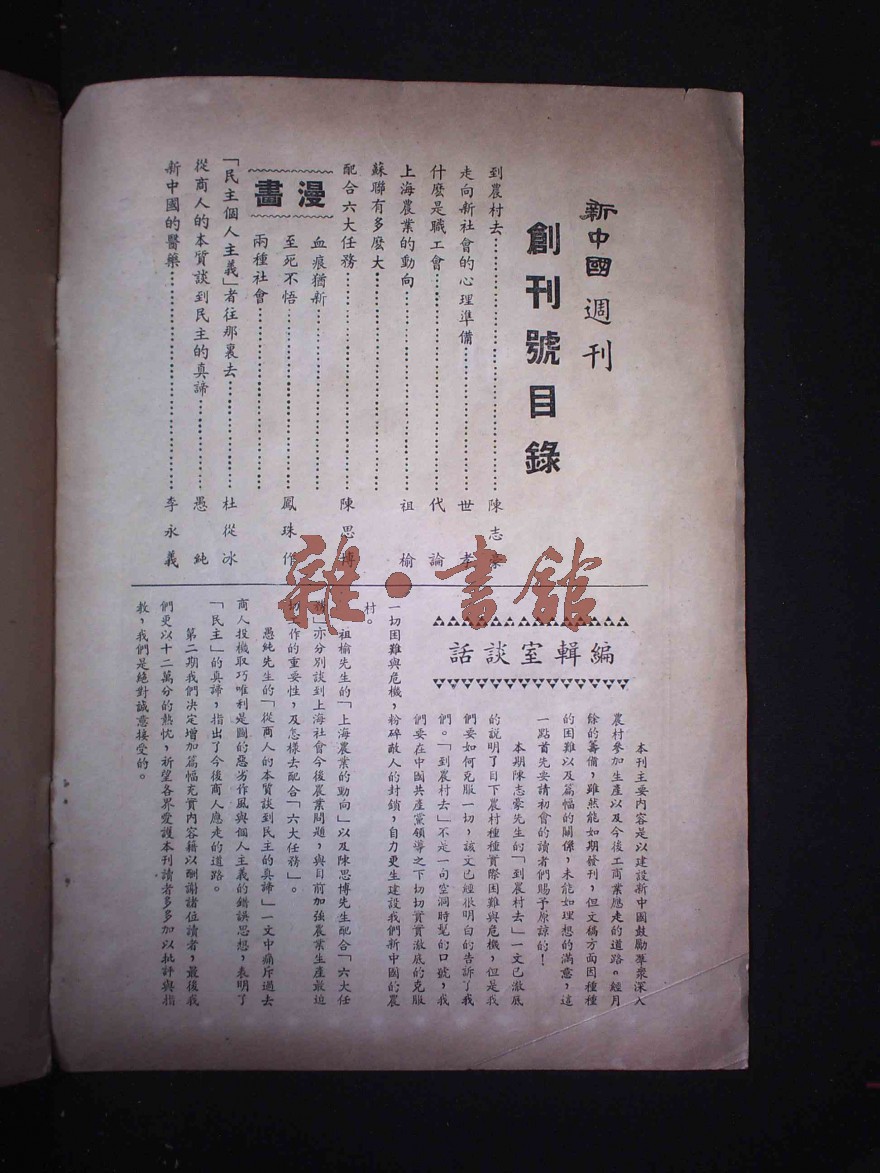 新中國週刊
創刊號目錄
到農村去……………………陳志豪
走向新社會的心理準備…………世孝
什麽是職工會………………代論
上海農業的動向………………祖榆
蘇聯有多麽大………………
配合六大任務………………陳思博
漫畫
血痕猶新………………
至死不悟………………鳳珠作
兩種社會………………
「民主個人主義」者往那裏去…………杜從冰
從商人的本質談到民主的真諦…………愚純
新中國的醫藥………………李永義
編輯室談話
本刊主要內容是以建設新中國鼓勵羣衆深入
農村參加生產以及今後工商業應走的道路。經月
餘的籌備，雖然能如期發刊，但文稿方面因種種
的困難以及篇幅的關係，未能如理想的滿意，這
一點首先要請初會的讀者們賜予原諒的！
本期陳志豪先生的「到農村去」一文已澈底
的說明了目下農村種種實際困難與危機，但是我
們要如何克服一切，該文已經很明白的告訴了我
們。「到農村去」不是一句空洞時髦的口號，我
們要在中國共產黨領導之下切切實實澈底的克服
一切困難與危機，粉碎敵人的封鎖，自力更生建設我們新中國的農
村。
祖榆先生的「上海農業的動向」以及陳思博先生配合「六大任
務」亦分別談到上海社會今後農業問題，與目前加强農業生產最迫
切工作的重要性，及怎樣去配合「六大任務」。
愚純先生的「從商人的本質談到民主的真諦」一文中痛斥過去
商人投機取巧唯利是圖的惡劣作風與個人主義的錯誤思想，表明了
「民主」的真諦，指出了今後商人應走的道路。
第二期我們決定增加篇幅充實內容藉以酬謝諸位讀者，最後我
們更以十二萬分的熱忱，祈望各界愛護本刊讀者多多加以批評與指
教，我們是絕對誠意接受的。
雜·書館